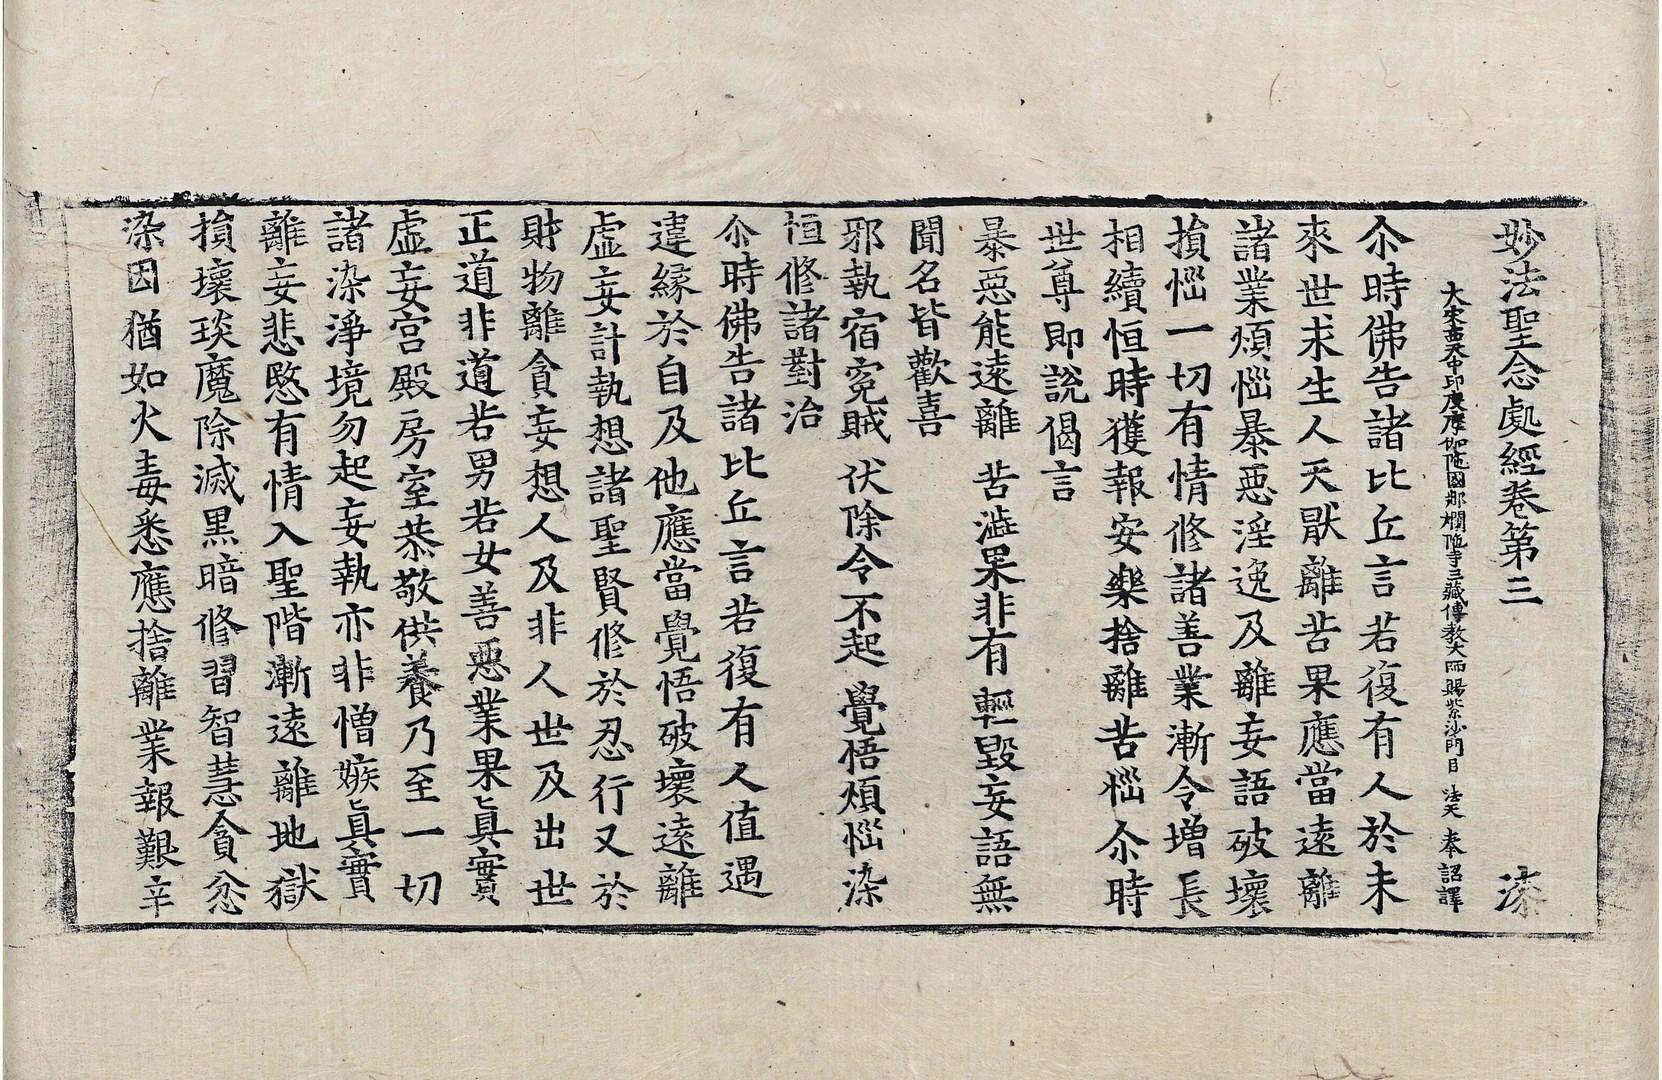 妙法聖念處經卷第三 漆
大宋西天中印度摩伽陁國那爛陁寺三藏傳教大師賜紫沙門臣 法天 奉 詔譯
尒時佛告諸比丘言若復有人於未
來世求生人天猒離苦果應當遠離
諸業煩惱暴惡淫逸及離妄語破壞
損惱一切有情修諸善業漸令增長
相續恒時獲報安樂捨離苦惱尒時
世尊即說偈言
暴惡能遠離 苦澁果非有 輕毀妄語無
聞名皆歡喜
邪執宿寃賊 伏除令不起 覺悟煩惱染
恒修諸對治
尒時佛告諸比丘言若復有人值遇
違緣於自及他應當覺悟破壞遠離
虛妄計執想諸聖賢修於忍行又於
財物離貪妄想人及非人世及出世
正道非道若男若女善惡業果眞實
虛妄宮殿房室恭敬供養乃至一切
諸染淨境勿起妄執亦非憎嫉眞實
離妄悲愍有情入聖階漸遠離地獄
損壞琰魔除滅黑暗修習智慧貪忿
染因猶如火毒悉應捨離業報艱辛